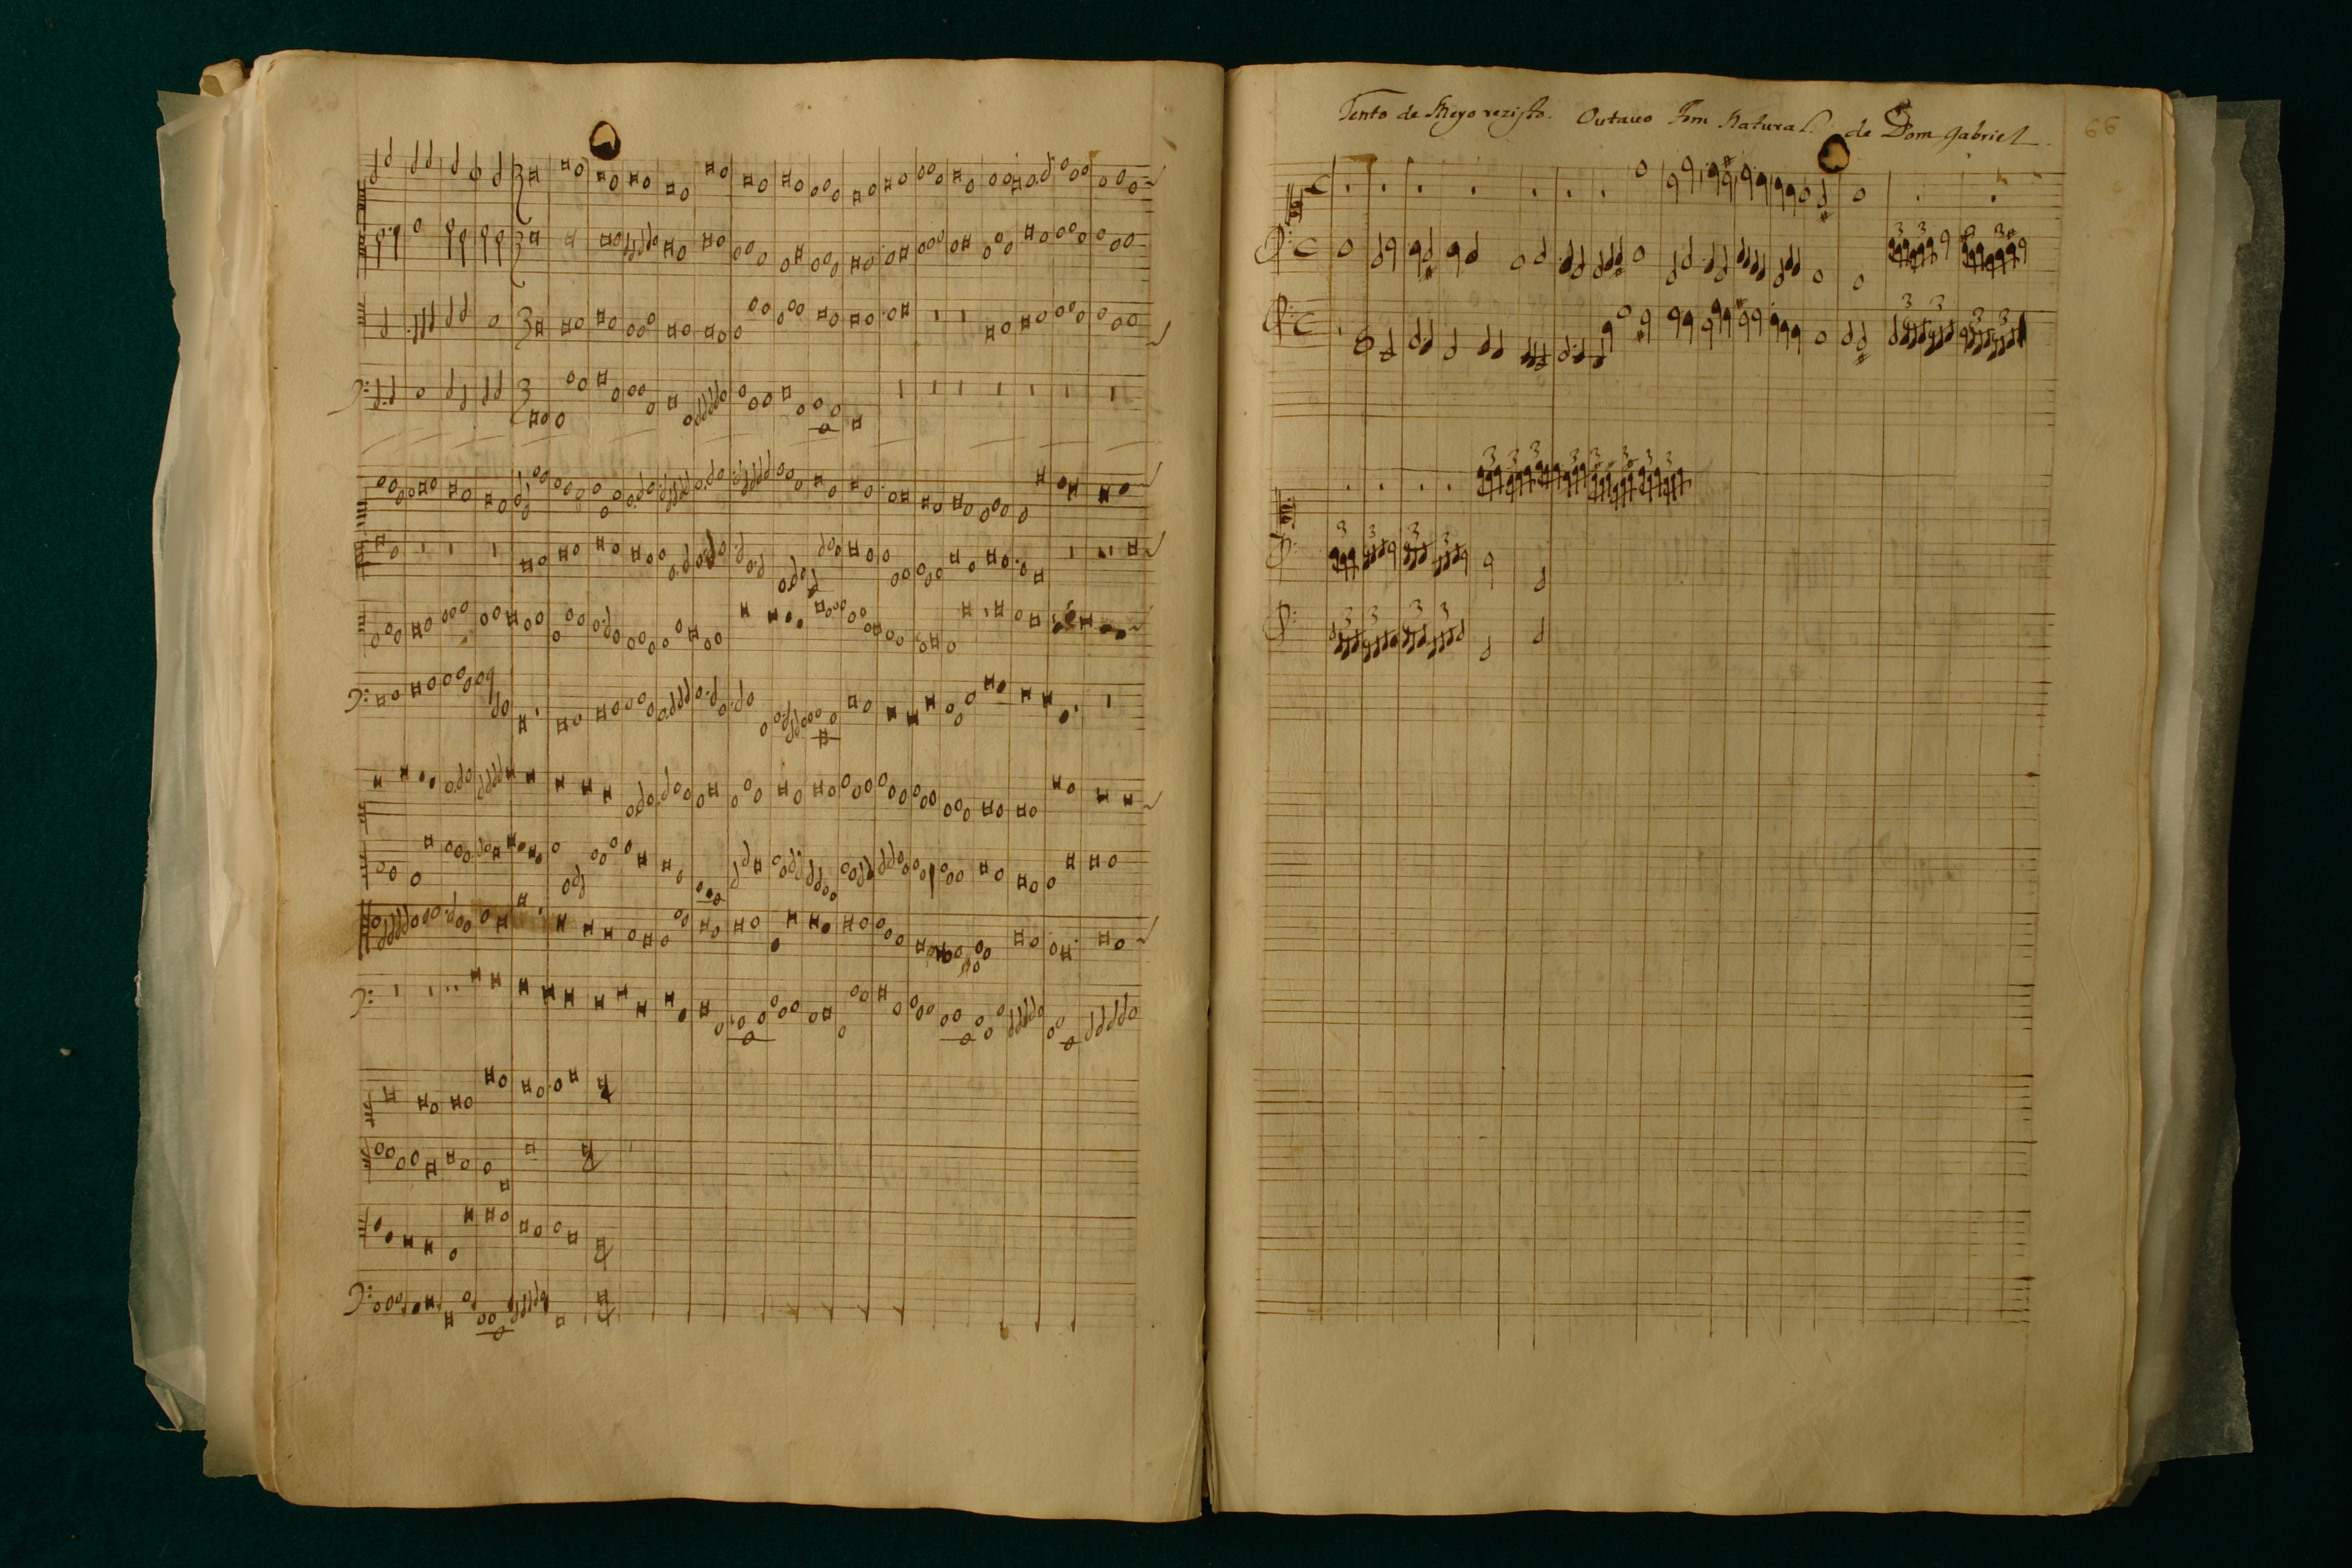 Tento de Meyo rezisto. Outauo Tom Natural. de Dom Gabriel.
66